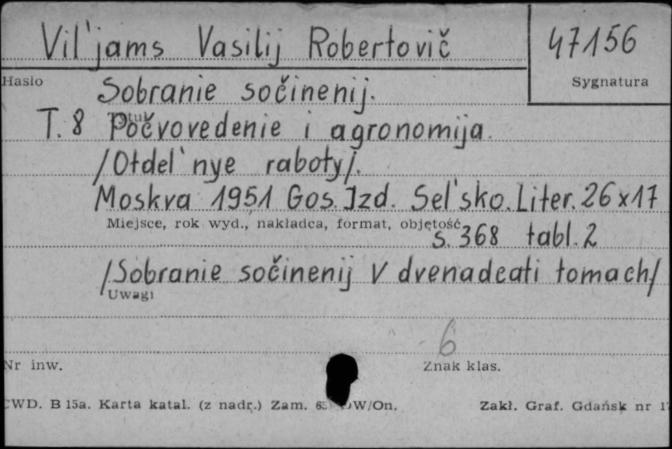 Vil'jams Vasilij Robertovič
47156
Hasło
Sygnatura
Sobranie sočinenij.
T. 8 Počvovedenie i agronomija.
/Otdel'nye raboty/.
Moskva 1951 Gos. Izd. Sel'sko. Liter. 26x17
Miejsce, rok wyd., nakładca, format, objętość
s. 368 tabl. 2
/Sobranie sočinenij v dvenadcati tomach/
Uwagi
6
Nr inw.
Znak klas.
CWD. B 15a. Karta katal. (z nadr.) Zam. W/On.
Zakł. Graf. Gdańsk nr